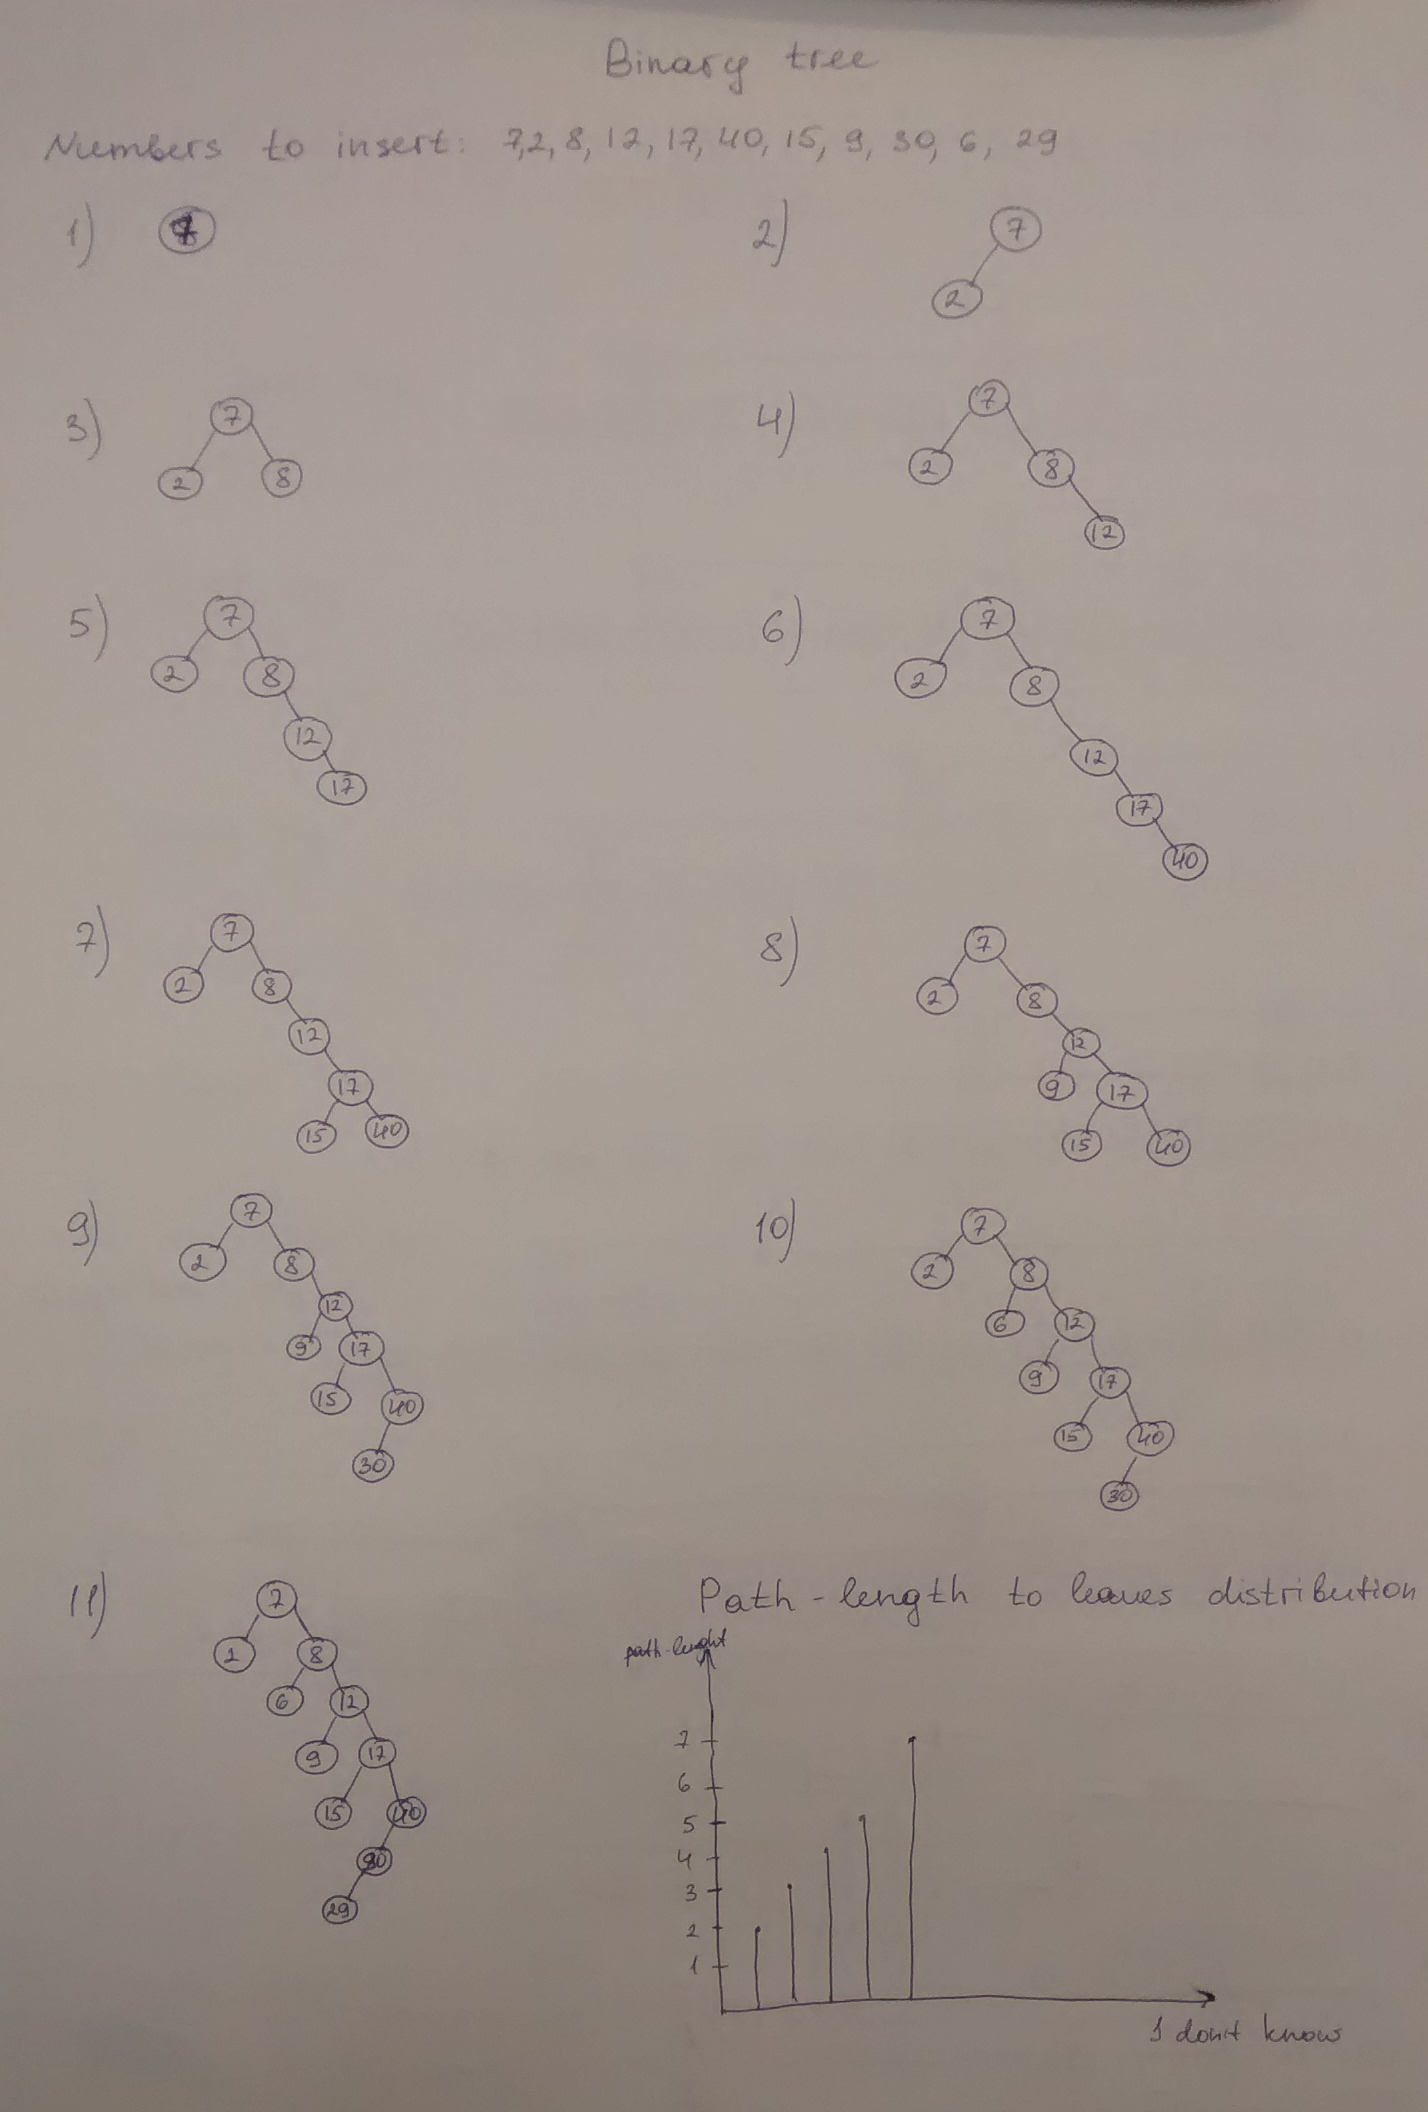 Binary tree
Numbers to insert: 7,2, 8, 12, 17, 40, 15, 9, 30, 6, 29
1) 7
2) 7
2
3) 7
2 8
4) 7
2 8
12
5) 7
2 8
12
17
6) 7
2 8
12
17
40
7) 7
2 8
12
17
15 40
8) 7
2 8
12
9 17
15 40
9) 7
2 8
12
9 17
15 40
30
10) 7
2 8
6 12
9 17
15 40
30
11) 7
2 8
6 12
9 17
15 40
30
29
Path-length to leaves distribution
path-lenght
7
6
5
4
3
2
1
I don't know